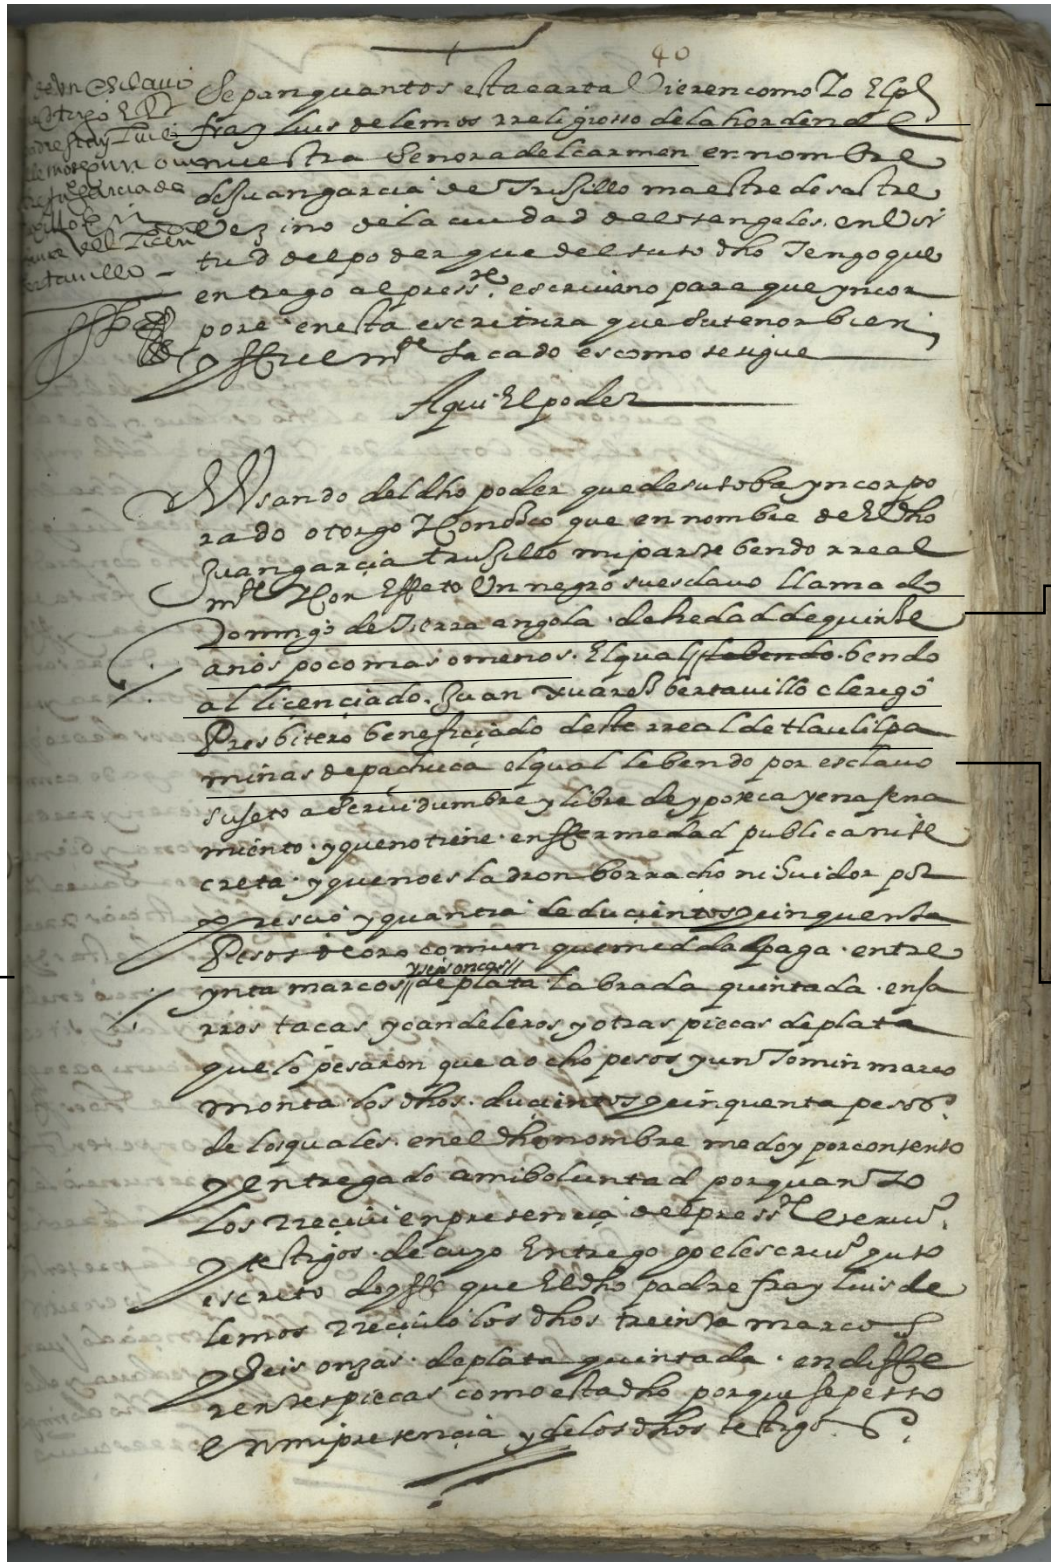 40
de un esclavo
Sepan quantos esta carta Vieren como Yo El pe
fray luis de lemos rreligiosso de la horden de
nuestra Senora del carmen en nombre
de Juan garcia de Trusillo maestre de sastre
Vezino de la ciudad de los angeles. en Vir
tud del poder que del suso dho Tengo que
entrego al presste. escrivano para que yncor
pore en esta escritura que su tenor bien
y ffielmte sacado es como se sigue
Aqui El poder
Usando del dho poder que de suso ba yncorpo
rado otorgo Y conosco que en nombre de El dho
Juan garcia trusillo mi parte bendo rreal
mte Y con Effeto Un negro su esclavo llamado
Domingo de Tierra angola de hedad de quinse
anos poco mas o menos. El qual le bendo bendo
al licenciado. Juan xuares bertavillo clerigo
Presbitero beneficiado deste rreal de tlaulilpa
minas de pachuca el qual le bendo por esclavo
sujeto a Servidumbre y libre de ypoteca y enajena
miento. y que no tiene enffermedad publica ni se
creta. y que no es ladron borracho ni huidor por
prescio y quantia de ducientos y cinquenta
Pesos de oro comun que me da y paga entre
y seis onças
ynta marcos de plata labrada quintada en ja
rros tacas y candeleros y otras pieças de plata
que lo pesaron que a ocho pesos y un Tomin marco
monta los dhos. ducientos y cinquenta pesos.
de los quales en el dho nombre me doy por contento
y entregado a mi boluntad por quanto
los rrecivi en presencia del presste escrivo.
y testigos. de cuyo Entrego yo el escrivo yuso
escreto doy ffe que El dho padre fray luis de
lemos rrecivio los dhos treinta marcos
y Seis onzas de plata quintada. en diffe
rentes pieças como esta dho porque se pesso
en mi presencia y de los dhos testigos.